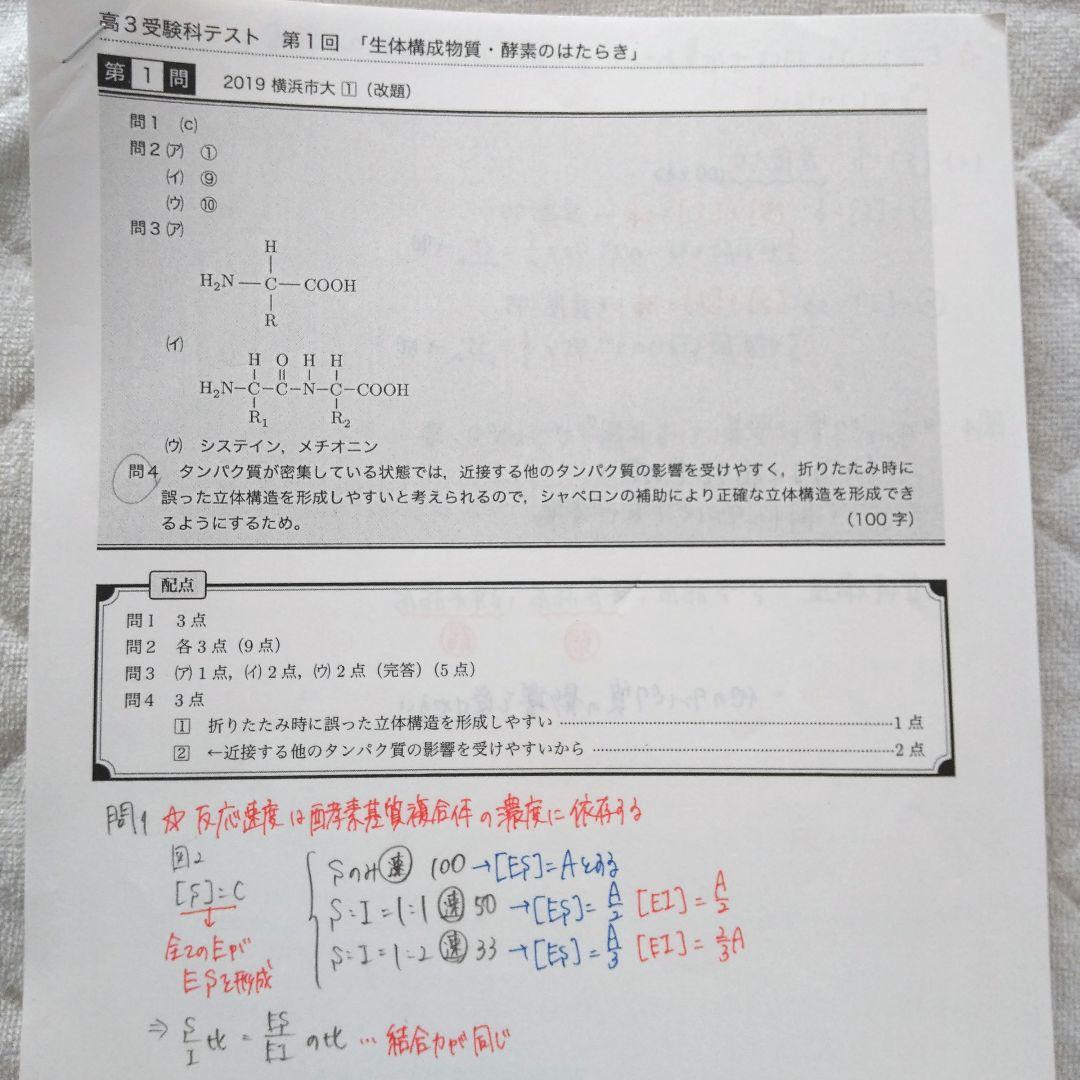 高3受験科テスト 第1回 「生体構成物質・酵素のはたらき」
第1問 2019 横浜市大 1 (改題)
問1 (c)
問2 (ア) ①
(イ) ⑨
(ウ) ⑩
問3 (ア)
H
H₂N—C—COOH
R
(イ)
H O H H
H₂N−C−C−N−C−COOH
R₁ R₂
(ウ) システイン，メチオニン
問4 タンパク質が密集している状態では，近接する他のタンパク質の影響を受けやすく，折りたたみ時に
誤った立体構造を形成しやすいと考えられるので，シャペロンの補助により正確な立体構造を形成でき
るようにするため。 (100字)
配点
問1 3点
問2 各3点（9点）
問3 (ア)1点，(イ)2点，(ウ)2点（完答）（5点）
問4 3点
1 折りたたみ時に誤った立体構造を形成しやすい ………1点
2 ←近接する他のタンパク質の影響を受けやすいから ………2点
問1 ☆ 反応速度は酵素基質複合体の濃度に依存する
図2
[S]=C
全てのEが
ESを形成
Sのみ 速 100 →[ES]=Aとする
S:I=1:1 速 50 →[ES]=A/2 [EI]=A/2
S:I=1:2 速 33 →[ES]=A/3 [EI]=2/3A
⇒ S/I 比 = ES/EI の比 … 結合力が同じ